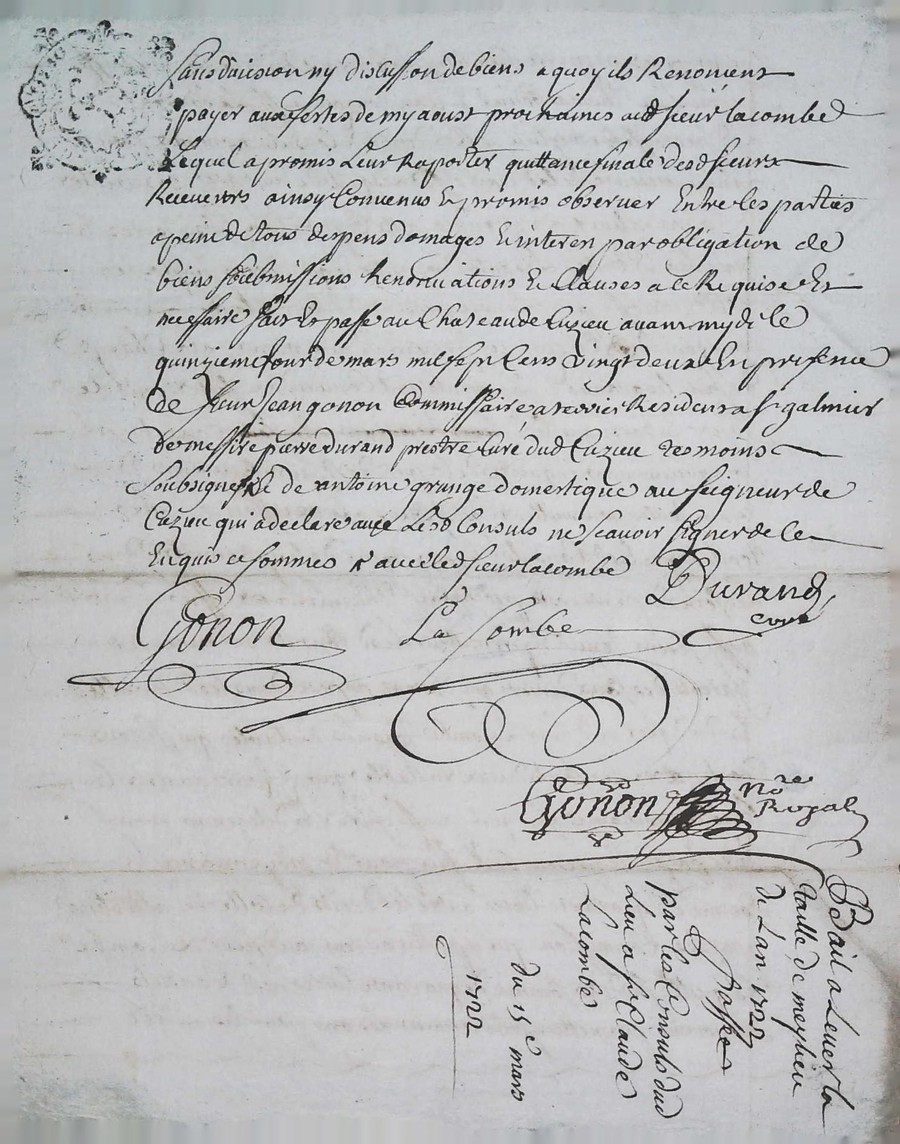 sans division ny discussion de biens a quoy ils Renoncent
payer aux festes de my aoust prochaines aud sieur lacombe
Lequel a promis Leur Raporter quittance finale desd sieurs
Receveurs ainsy Convenus & promis observer Entre les parties
a peine de tous despens domages & interes par obligation de
biens soubmissions Renonciations & Clauses a ce Requise Et
necessaire fait Et passe au Chateau de Cuzieu avant mydi le
quinzieme Jour de mars mil sept Cens vingt deux En presence
de sieur Jean gonon Commissaire a terrier Resident a st galmier
De messire pierre durand prestre Curé dud Cuzieu tesmoins
soubsignes & de antoine grange domestique au seigneur de
Cuzieu qui a declare avec Lesd Consuls ne scavoir signer de ce
Enquis et sommes & avec led sieur lacombe
Durand
curé
Gonon
La Combe
Gonon
Nore
Royal
Bail a Lever la
taille de meylieu
de Lan 1722
Passée
par les Consuls dud
Lieu a sr Claude
Lacombe
du 15e mars
1722